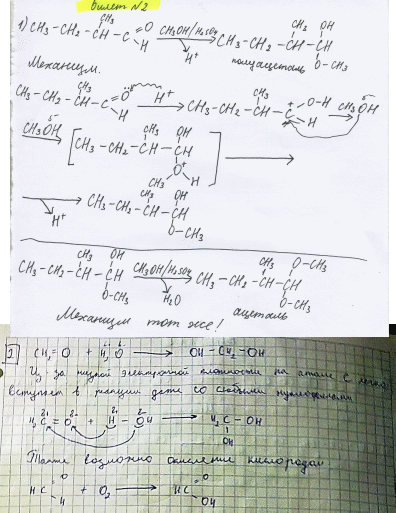 Билет №2
1) CH₃-CH₂-CH(CH₃)-C(=O)H CH₃OH/H₂SO₄ → CH₃-CH₂-CH(CH₃)-CH(OH)-O-CH₃
H⁺
полуацеталь
Механизм.
CH₃-CH₂-CH(CH₃)-C(=O)H H⁺ → CH₃-CH₂-CH(CH₃)-C⁺(O-H)H CH₃OH
CH₃OH → [CH₃-CH₂-CH(CH₃)-CH(OH)-O⁺(CH₃)H] →
→ H⁺ CH₃-CH₂-CH(CH₃)-CH(OH)-O-CH₃
CH₃-CH₂-CH(CH₃)-CH(OH)-O-CH₃ CH₃OH/H₂SO₄ → H₂O CH₃-CH₂-CH(CH₃)-CH(O-CH₃)-O-CH₃
ацеталь
Механизм тот же!
2 CH₂=O + H₂O → OH-CH₂-OH
Из-за низкой электронной плотности на атоме C легко
вступает в реакции даже со слабыми нуклеофилами
H₂C=O + H-OH → H₂C(OH)-OH
Также возможно окисление кислородом
HC(=O)H + O₂ → HC(=O)OH